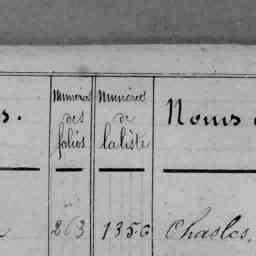 s. Numéros des folios Numéros de la liste Noms
263 1356 Chasles,